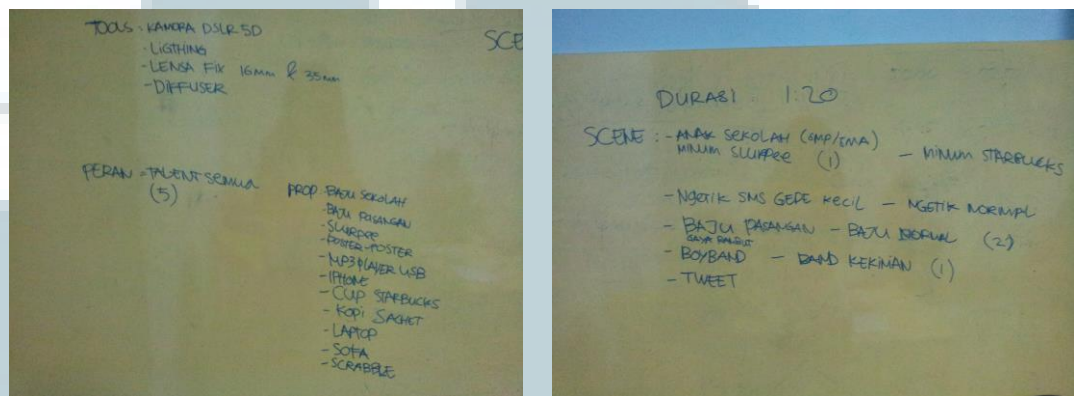 TOOLS : KAMERA DSLR 5D
- LIGTHING
- LENSA FIX 16mm & 35mm
- DIFFUSER
SCE
PERAN = TALENT SEMUA
(5)
PROP : BAJU SEKOLAH
- BAJU PASANGAN
- SLURPEE
- POSTER-POSTER
- MP3 PLAYER USB
- IPHONE
- CUP STARBUCKS
- KOPI SACHET
- LAPTOP
- SOFA
- SCRABBLE
DURASI : 1:20
SCENE : - ANAK SEKOLAH (SMP/SMA)
MINUM SLURPEE (1) - MINUM STARBUCKS
- NGETIK SMS GEDE KECIL - NGETIK NORMAL
- BAJU PASANGAN - BAJU NORMAL (2)
GAYA RAMBUT
- BOYBAND - BAND KEKINIAN (1)
- TWEET